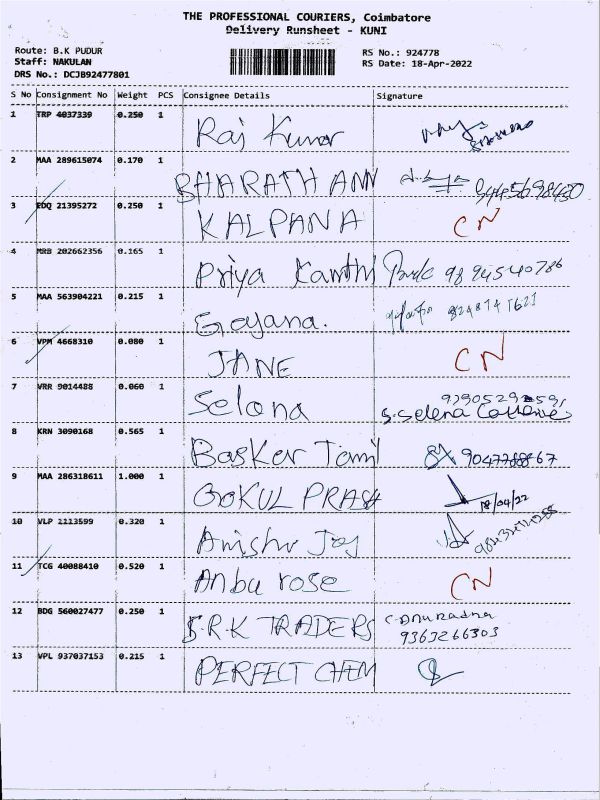 THE PROFESSIONAL COURIERS, Coimbatore
Delivery Runsheet - KUNI
Route: B.K PUDUR
Staff: NAKULAN
DRS No.: DCJB92477801
RS No.: 924778
RS Date: 18-Apr-2022
S No Consignment No Weight PCS Consignee Details Signature
1 TRP 4037339 0.250 1 Raj Kumar
2 MAA 289615074 0.170 1 BHARATH ANN
3 EDQ 21395272 0.250 1 KALPANA CN
4 MRB 202662356 0.165 1 Priya Kanthi 9894540786
5 MAA 563904221 0.215 1 Goyana.
6 VPM 4668310 0.080 1 JANE CN
7 VRR 9014488 0.060 1 Selona
S.Selena
8 KRN 3090168 0.565 1 Basker Tamil
9 MAA 286318611 1.000 1 GOKUL PRASA 18/04/22
10 VLP 1113599 0.320 1 Anisha Joy
11 TCG 40088410 0.520 1 Anbu rose CN
12 BDG 560027477 0.250 1 S.R.K TRADERS C.Anuradha
9363266303
13 VPL 937037153 0.215 1 PERFECT CHEM